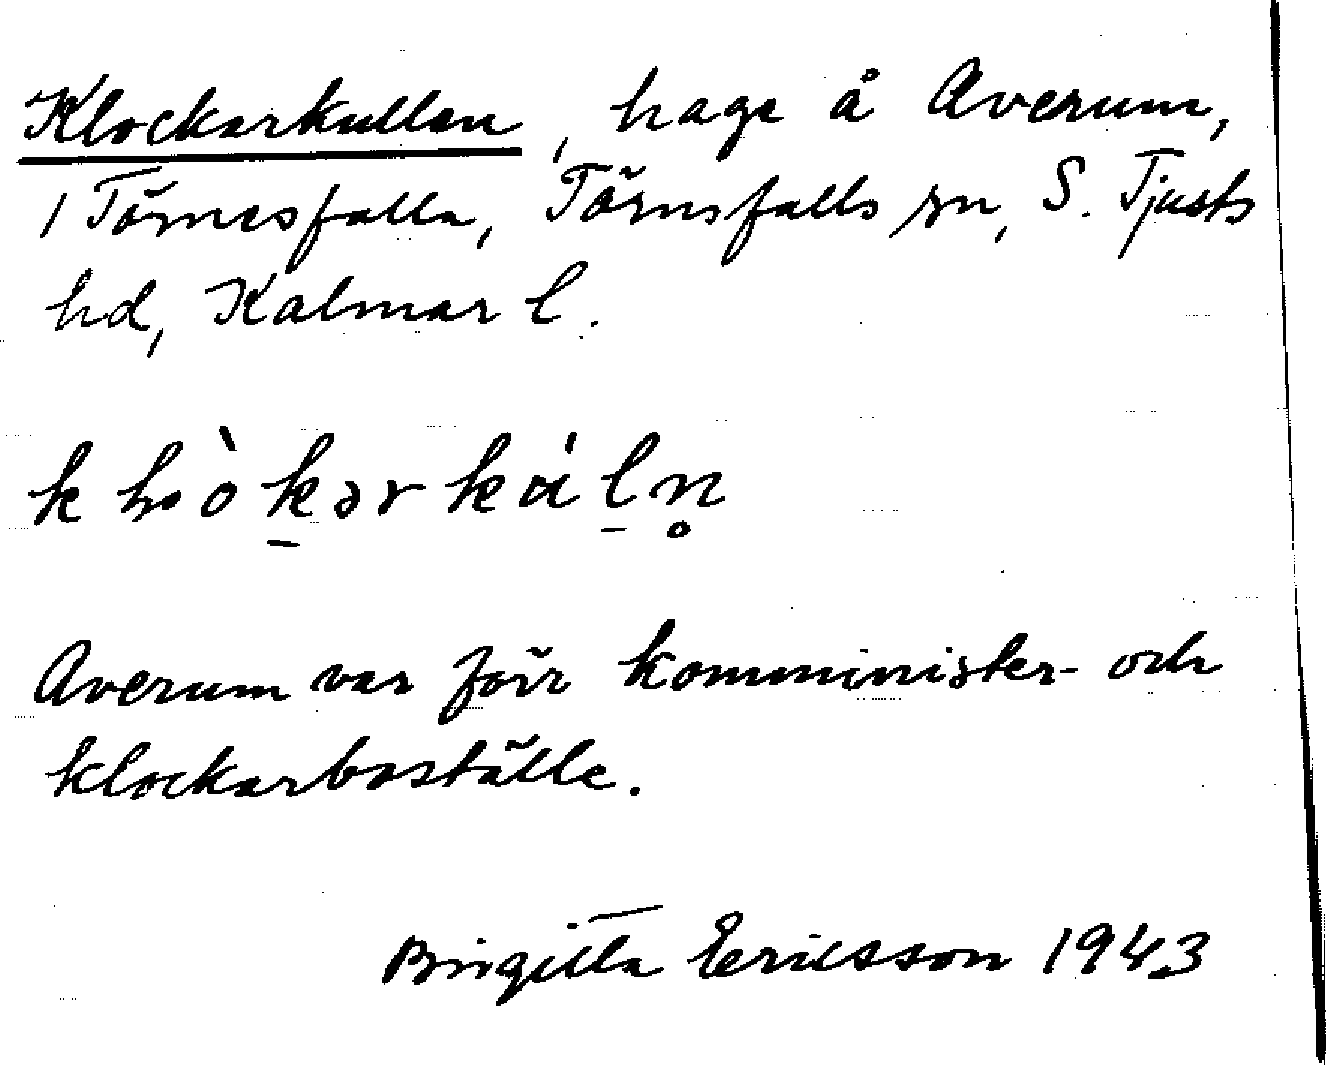 Klockarkullen, hage å Averum,
1 Törnesfalla, Törnsfalls sn, S. Tjusts
hd, Kalmar l.
Averum var förr komminister- och
klockarboställe.
Birgitta Ericsson 1943